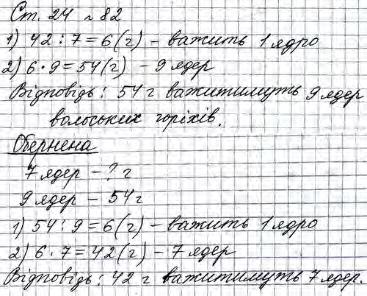 Ст. 24 № 82
1) 42 : 7 = 6 (г) – важить 1 ядро
2) 6 · 9 = 54 (г) – 9 ядер
Відповідь: 54 г важитимуть 9 ядер
волоських горіхів.
Обернена
7 ядер – ? г
9 ядер – 54 г
1) 54 : 9 = 6 (г) – важить 1 ядро
2) 6 · 7 = 42 (г) – 7 ядер
Відповідь: 42 г важитимуть 7 ядер.